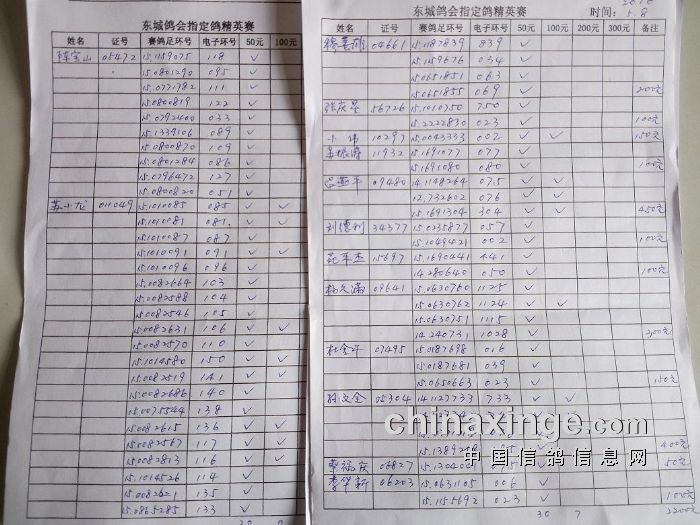 东城鸽会指定鸽精英赛
姓名 证号 赛鸽足环号 电子环号 50元 100元
陈宝山 05472 15.1159075 118 ✓
15.0801290 095 ✓
15.0771782 111 ✓
15.0800819 122 ✓
15.0792400 033 ✓
15.1339106 089 ✓
15.0800870 109 ✓
15.0801284 086 ✓
15.0796472 127 ✓
15.0800820 051 ✓
苏小龙 011049 15.1010085 085 ✓ ✓
15.1010081 081 ✓ ✓
15.1010087 087 ✓
15.1010091 091 ✓ ✓
15.1010096 096 ✓
15.0082664 103 ✓
15.0082588 104 ✓
15.0082546 105 ✓
15.0082631 106 ✓ ✓
15.0082570 110 ✓
15.1014580 150 ✓ ✓
15.0082519 141 ✓ ✓
15.0082686 140 ✓
15.0075544 138 ✓
15.0082615 136 ✓ ✓
15.0082567 117 ✓ ✓
15.0082813 116 ✓ ✓
15.1014526 114 ✓
15.0082621 135 ✓
15.0865285 133 ✓
东城鸽会指定鸽精英赛 时间: 5.8
姓名 证号 赛鸽足环号 电子环号 50元 100元 200元 300元 备注
04661 15.1187839 839 ✓
15.1159676 034 ✓
15.0651851 063 ✓
15.0651855 069 ✓ 200元
张庆星 56726 15.1010750 750 ✓
15.2222830 023 ✓ 100元
小伟 10297 15.0043333 002 ✓ ✓ 150元
11932 15.1691077 077 ✓
15.1691080 080 ✓ 100元
09480 14.1148264 075 ✓ ✓
12.732602 076 ✓ ✓
15.1691304 304 ✓ ✓ 450元
刘德利 34377 15.0235877 057 ✓
15.1049421 002 ✓ 100元
15697 15.1690441 441 ✓
14.280640 050 ✓ 100元
杨久满 09641 15.0630760 1125 ✓
15.0630762 1124 ✓ ✓
15.0630751 1115 ✓
14.240731 1028 ✓ 200元
杜金平 07495 15.0187698 016 ✓
15.0187681 039 ✓
15.0650663 023 ✓ 150元
孙文全 05304 14.1127733 733 ✓ ✓
400元
蔡福庆 06827 50元
李华新 06203 15.0631105 006 ✓
15.1155692 023 ✓ 100元
30 7 2200元
chinaxinge.com
中国信鸽信息网